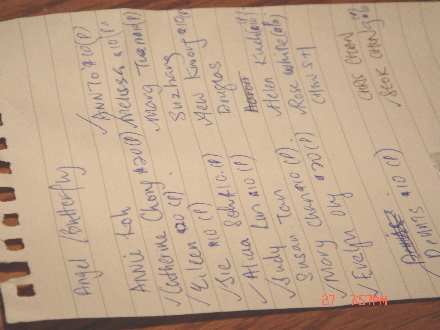 Angel / Butterfly
Annie Koh
✓Catherine Chong $20 (P)
✓Eileen $10 (P)
✓Sie $10 (P)
✓Alicia Lim $10 (P)
✓Judy Tan
Susan Chan $10 (P)
✓Mary Ong $20 (P)
✓Evelyn
Dennis $10 (P)
✓Ann Toi $10 (P)
✓Melissa $10 (P)
✓Mary Tan
Suzhang
✓Yew Kwong $10
Douglas
✓Helen
✓Rose White
Chow
Chris Chow
✓Seok Ching
27 7:57PM